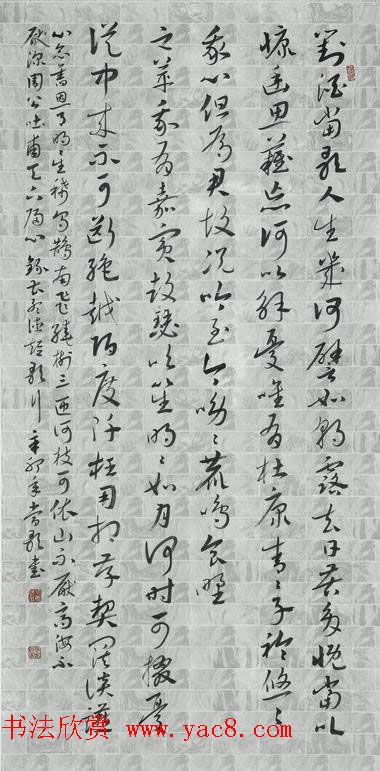 對酒當歌人生幾何譬如朝露去日苦多慨當以
慷幽思難忘何以解憂唯有杜康青〻子衿悠〻
我心但爲君故沉吟至今呦〻鹿鳴食野
之苹我有嘉賓鼓瑟吹笙明〻如月何時可掇憂
從中來不可斷絕越陌度阡枉用相存契闊談讌
心念舊恩月明星稀烏鵲南飛繞樹三匝何枝可依山不厭高海不
厭深周公吐哺天下歸心錄曹孟德短歌行辛卯年書
书法欣赏 www.yac8.com